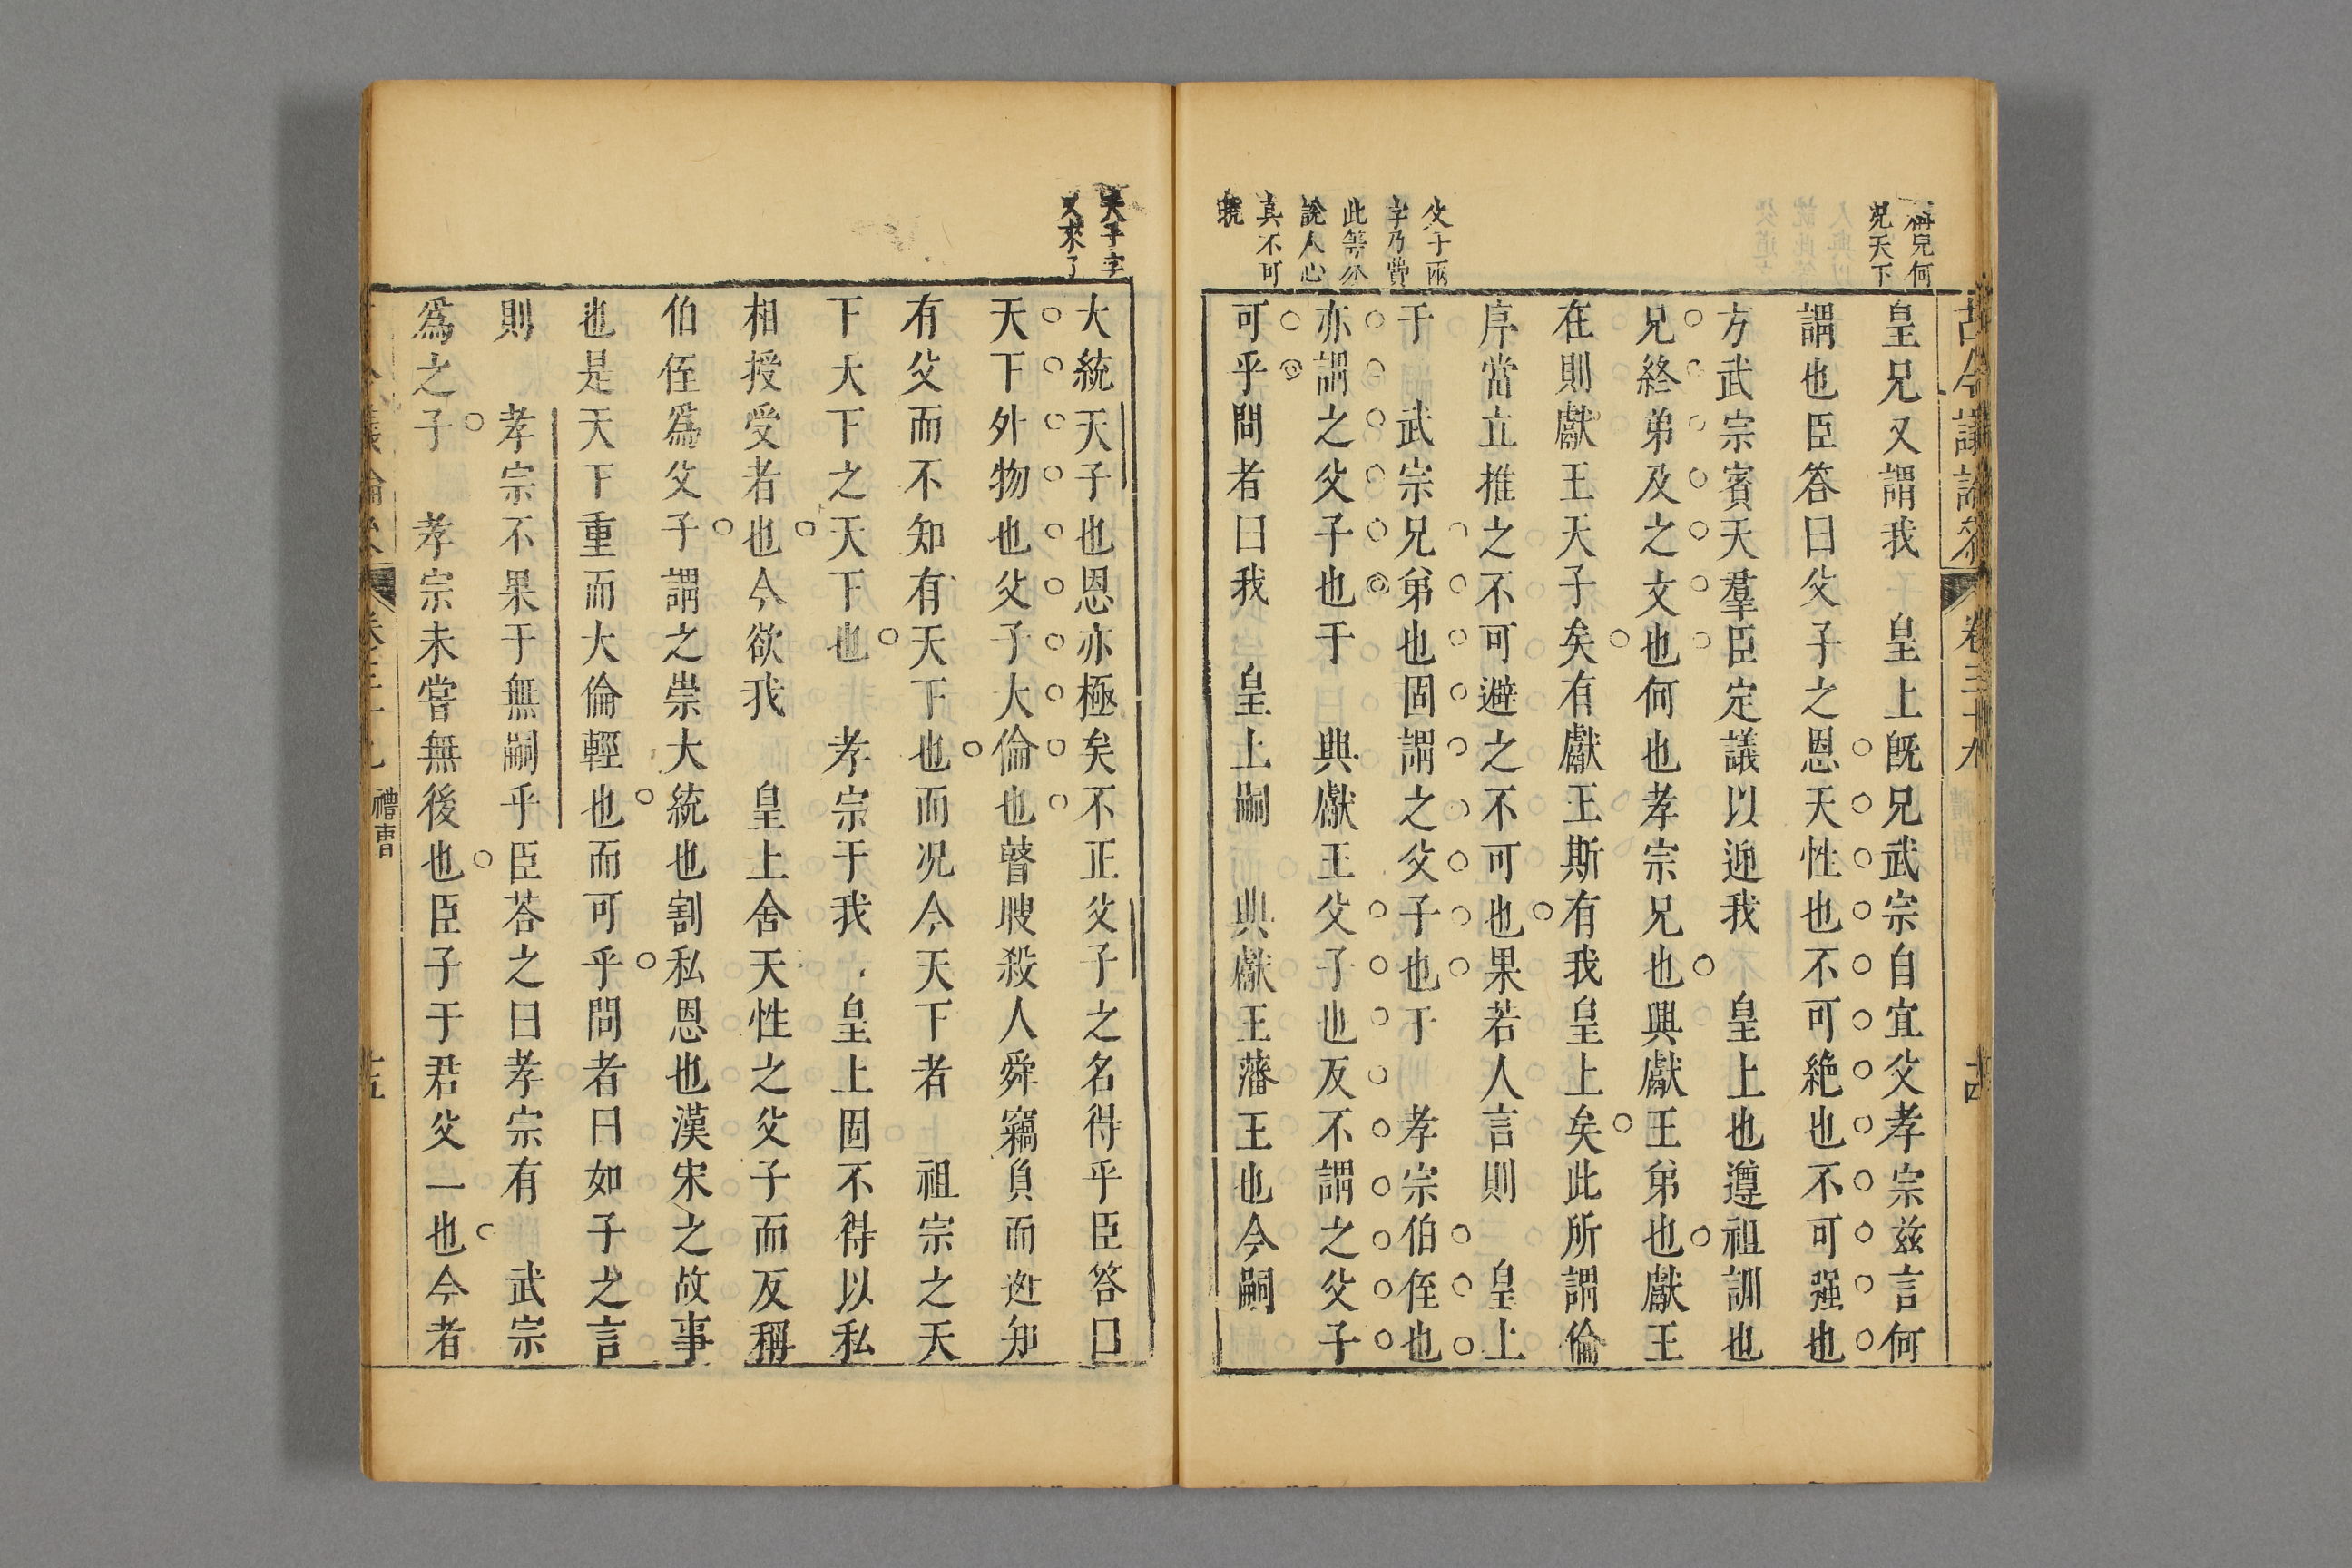 古今議論參
卷三十九
禮曹
再見何
況天下
皇兄又謂我 皇上旣兄武宗自宜父孝宗兹言何
謂也臣答曰父子之恩天性也不可絶也不可强也
方武宗賓天羣臣定議以迎我 皇上也遵祖訓也
兄終弟及之文也何也孝宗兄也興獻王弟也獻王
在則獻王天子矣有獻王斯有我皇上矣此所謂倫
序當立推之不可避之不可也果若人言則 皇上
父子兩
字乃費
此等分
說人心
真不可
于 武宗兄弟也固謂之父子也于 孝宗伯侄也
亦謂之父子也于 興獻王父子也反不謂之父子
可乎問者曰我 皇上嗣 興獻王藩王也今嗣
天子字
又來了
大統天子也恩亦極矣不正父子之名得乎臣答曰
天下外物也父子大倫也瞽瞍殺人舜竊負而逃知
有父而不知有天下也而况今天下者 祖宗之天
下大下之天下也 孝宗于我 皇上固不得以私
相授受者也今欲我 皇上舍天性之父子而反稱
伯侄爲父子謂之崇大統也割私恩也漢宋之故事
也是天下重而大倫輕也而可乎問者曰如子之言
則 孝宗不果于無嗣乎臣荅之曰孝宗有 武宗
爲之子 孝宗未嘗無後也臣子于君父一也今者
禮曹